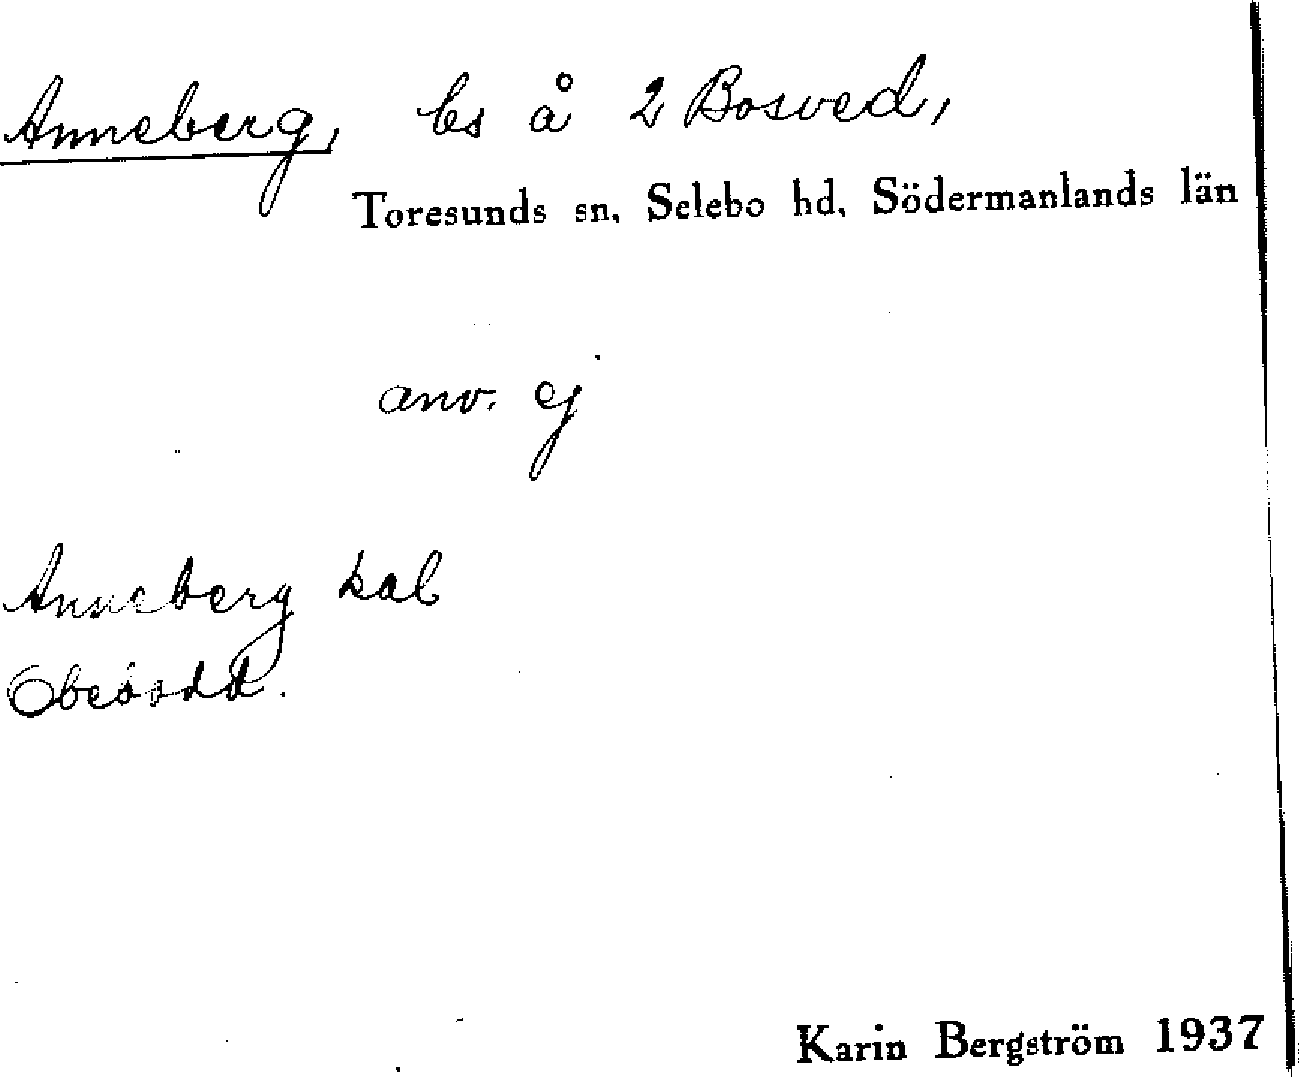 Anneberg, ls å 2 Bosved,
Toresunds sn, Selebo hd, Södermanlands län
anv. ej
Anneberg kal
Obesådd.
Karin Bergström 1937